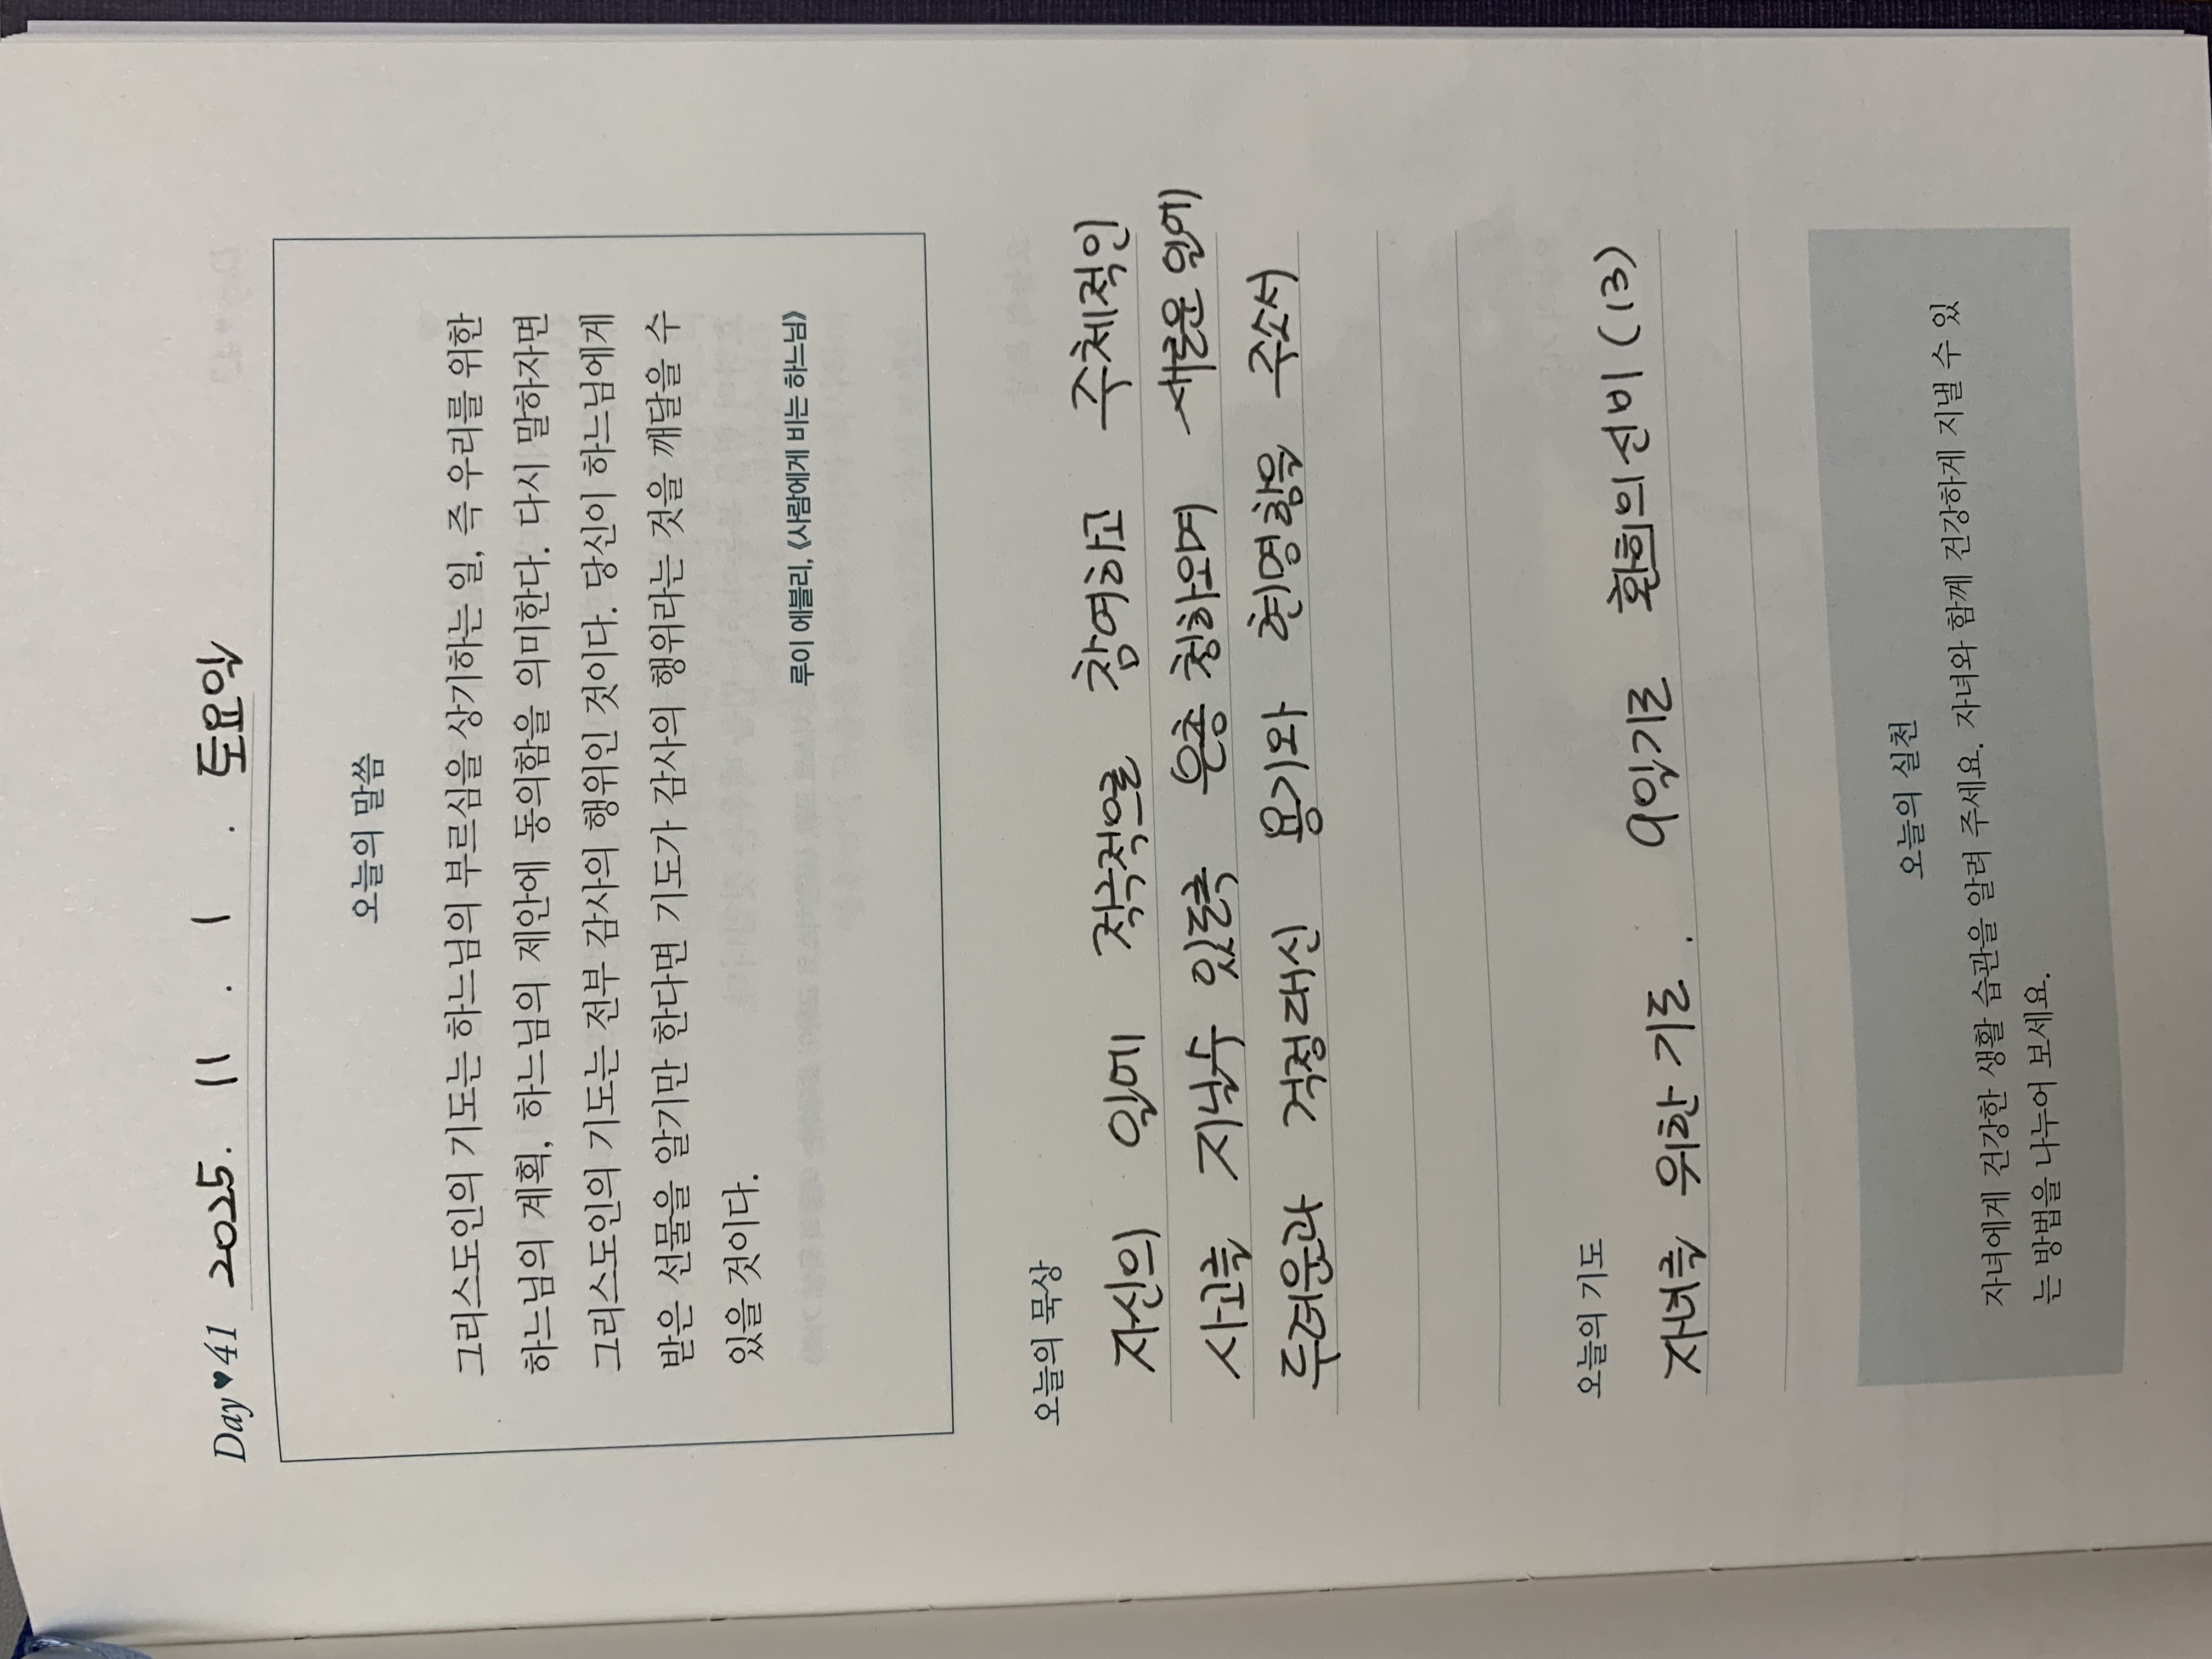 Day♥41 2025. 11 . 1 . 토요일
오늘의 말씀
그리스도인의 기도는 하느님의 부르심을 상기하는 일, 즉 우리를 위한
하느님의 계획, 하느님의 제안에 동의함을 의미한다. 다시 말하자면
그리스도인의 기도는 전부 감사의 행위인 것이다. 당신이 하느님에게
받은 선물을 알기만 한다면 기도가 감사의 행위라는 것을 깨달을 수
있을 것이다.
루이 에블리, 《사람에게 비는 하느님》
오늘의 묵상
자신의 일에 적극적으로 참여하고 주체적인
사고를 지닐수 있도록 은총 청하오며 새로운 일에
두려움과 걱정대신 용기와 현명함을 주소서
오늘의 기도
자녀를 위한 기도. 9일기도 환희의신비 (13)
오늘의 실천
자녀에게 건강한 생활 습관을 알려 주세요. 자녀와 함께 건강하게 지낼 수 있
는 방법을 나누어 보세요.